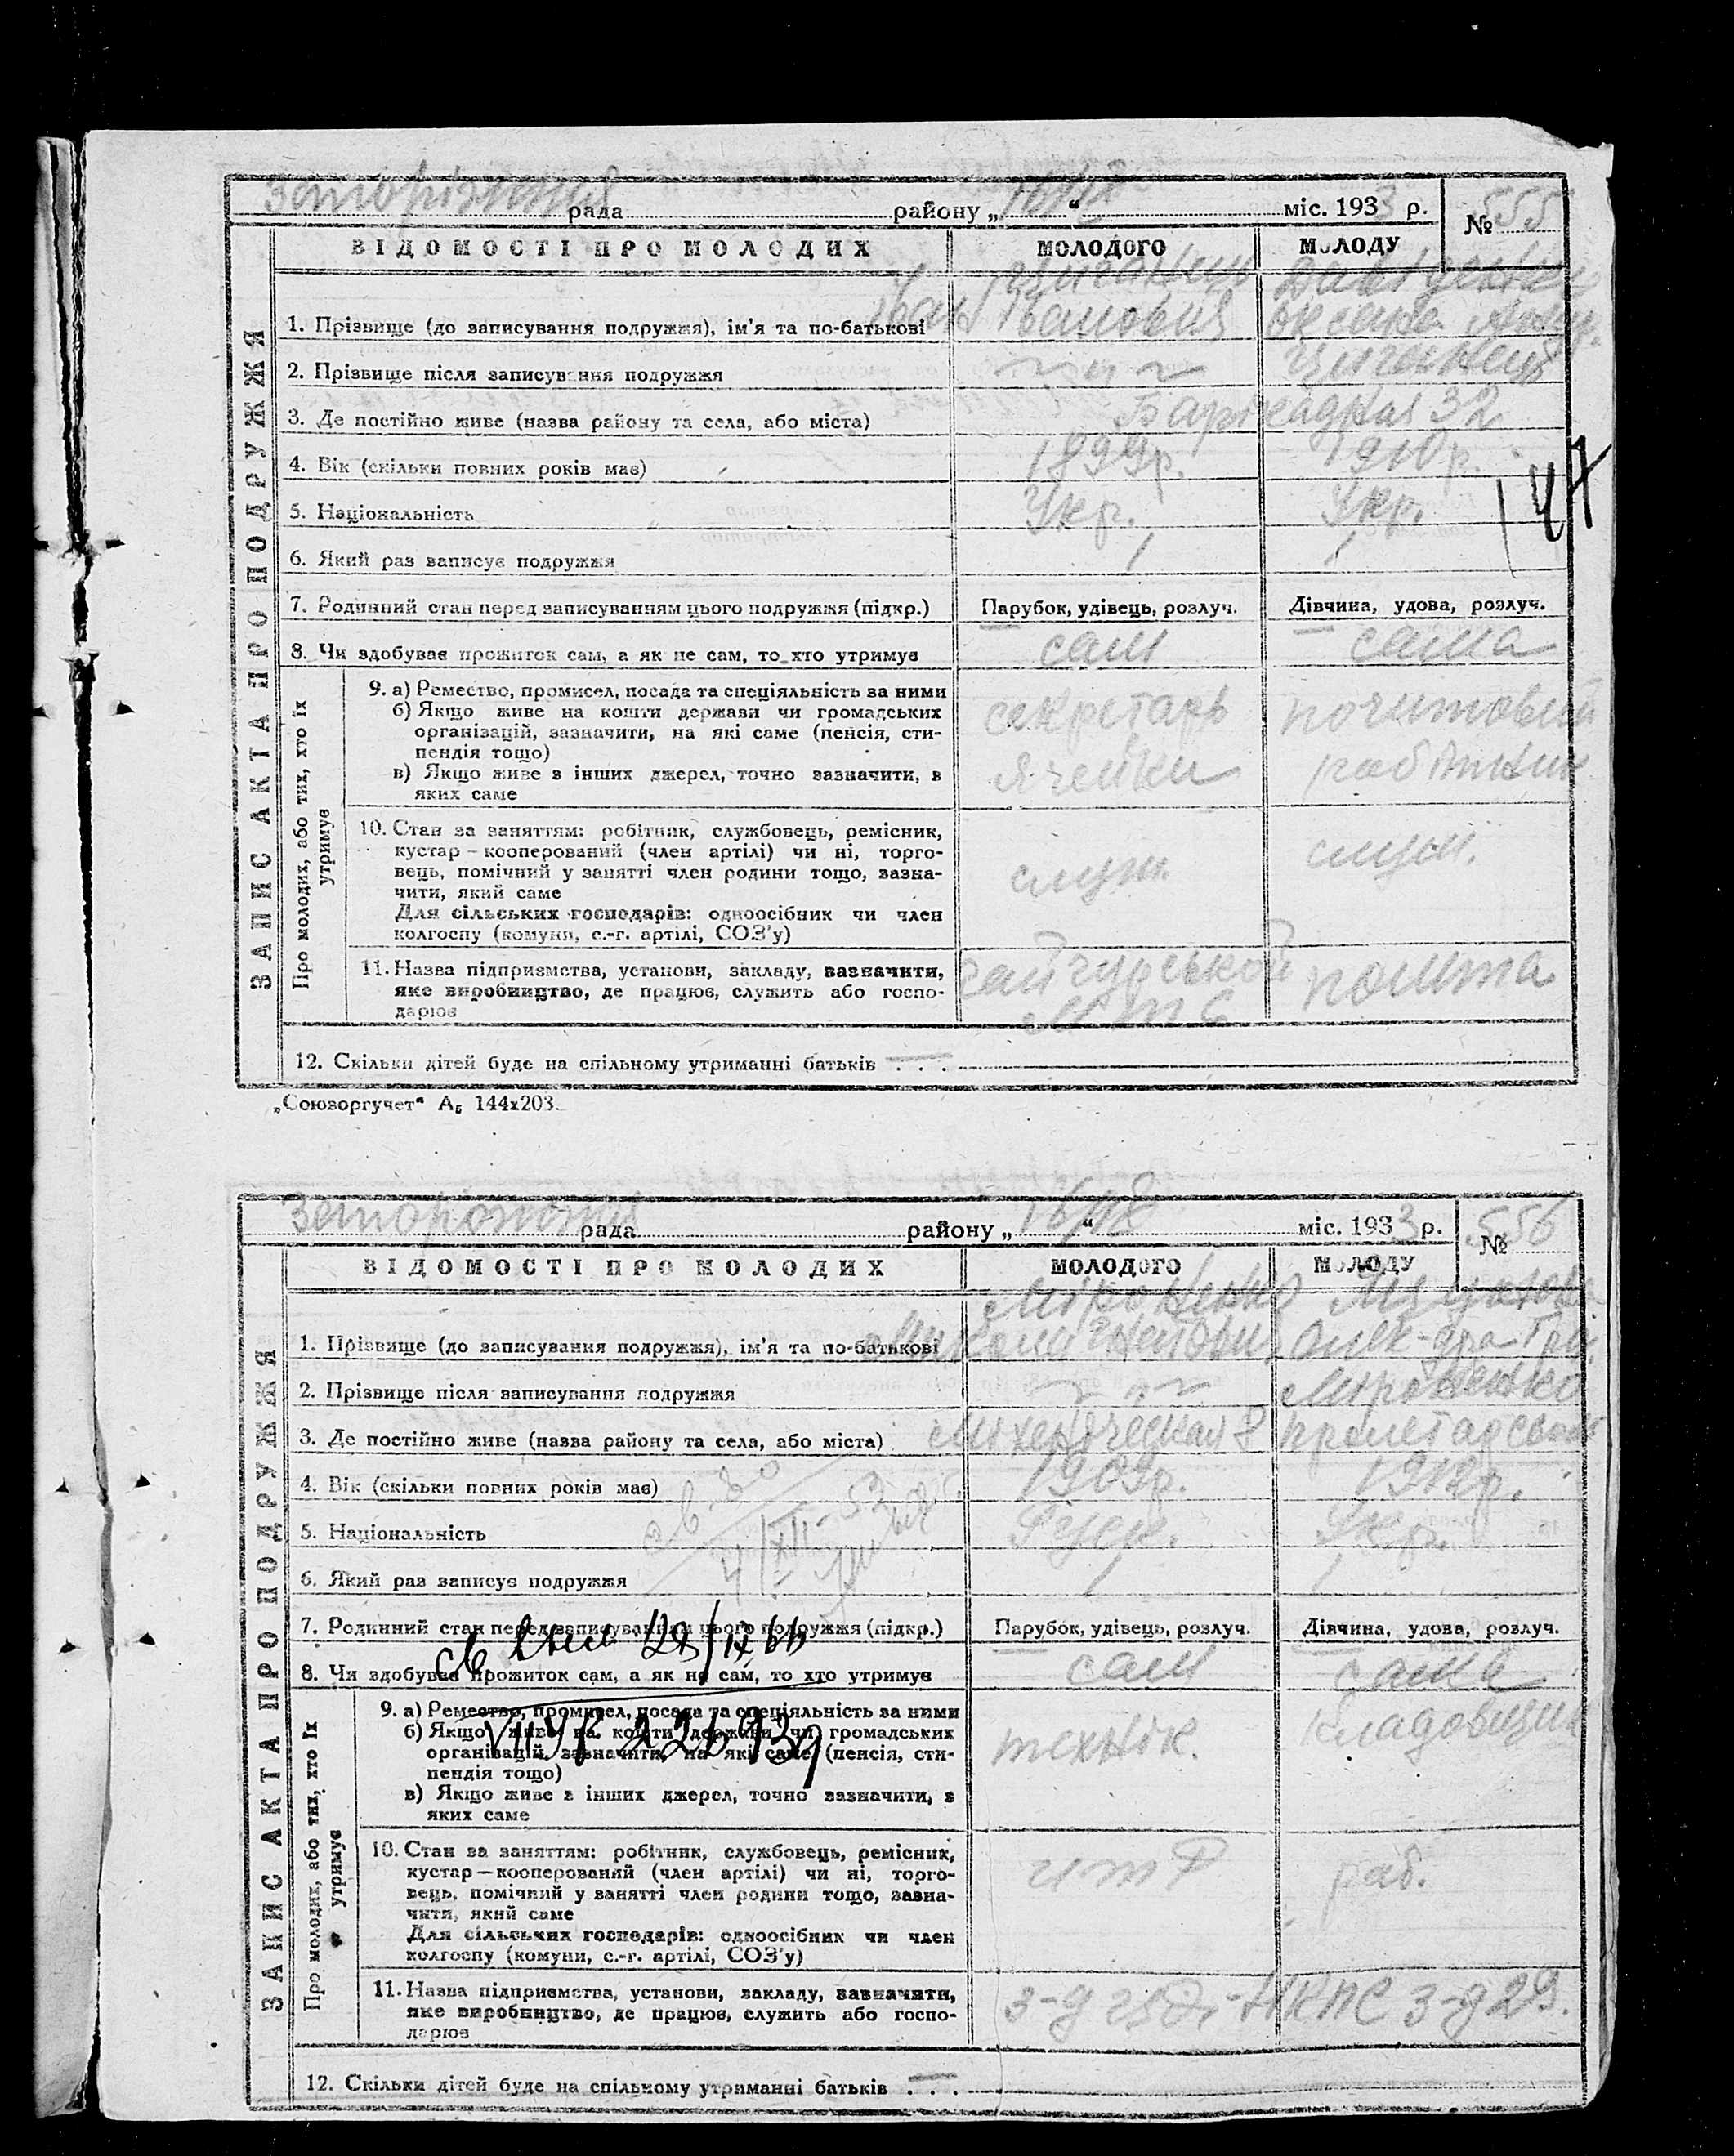 рада району „16/12“ міс. 1933 р. № 555
ВІДОМОСТІ ПРО МОЛОДИХ МОЛОДОГО МОЛОДУ
ЗАПИС АКТА ПРО ПОДРУЖЖЯ
1. Прізвище (до записування подружжя), ім'я та по-батькові Іван Іванович Оксана
2. Прізвище після записування подружжя ~ " ~
3. Де постійно живе (назва району та села, або міста) 32
4. Вік (скільки повних років має) 1899р. 1910р.
5. Національність Укр. Укр.
147
6. Який раз записує подружжя 1 1
7. Родинний стан перед записуванням цього подружжя (підкр.) Парубок, удівець, розлуч. Дівчина, удова, розлуч.
8. Чи здобуває прожиток сам, а як не сам, то хто утримує сам сама
Про молодих, або тих, хто їх утримує
9. а) Ремество, промисел, посада та спеціяльність за ними
б) Якщо живе на кошти держави чи громадських секретарь почитовий
організацій, зазначити, на які саме (пенсія, сти-
пендія тощо)
в) Якщо живе з інших джерел, точно зазначити, з ячейки робітник
яких саме
10. Стан за заняттям: робітник, службовець, ремісник,
кустар — кооперований (член артілі) чи ні, торго-
вець, помічний у занятті член родини тощо, зазна- служ. служ.
чити, який саме
Для сільських господарів: одноосібник чи член
колгоспу (комуни, с.-г. артілі, СОЗ'у)
11. Назва підприємства, установи, закладу, зазначити,
яке виробництво, де працює, служить або госпо- пошта
дарює МТС
12. Скільки дітей буде на спільному утриманні батьків . . . —
„Союзоргучет“ А₅ 144х203.
рада району „16/12“ міс. 1933 р. № 556
ВІДОМОСТІ ПРО МОЛОДИХ МОЛОДОГО МОЛОДУ
ЗАПИС АКТА ПРО ПОДРУЖЖЯ
Міроненко
1. Прізвище (до записування подружжя), ім'я та по-батькові Олек-дра Гри.
2. Прізвище після записування подружжя ~ " ~ Міроненко
3. Де постійно живе (назва району та села, або міста)
4. Вік (скільки повних років має) 1909р. 1912р.
5. Національність Укр.
6. Який раз записує подружжя 1 1
7. Родинний стан перед записуванням цього подружжя (підкр.) Парубок, удівець, розлуч. Дівчина, удова, розлуч.
8. Чи здобуває прожиток сам, а як не сам, то хто утримує сам сама
Про молодих, або тих, хто їх утримує
9. а) Ремество, промисел, посада та спеціяльність за ними
б) Якщо живе на кошти держави чи громадських технік.
організацій, зазначити, на які саме (пенсія, сти-
пендія тощо)
в) Якщо живе з інших джерел, точно зазначити, з
яких саме
10. Стан за заняттям: робітник, службовець, ремісник,
кустар — кооперований (член артілі) чи ні, торго- итР раб.
вець, помічний у занятті член родини тощо, зазна-
чити, який саме
Для сільських господарів: одноосібник чи член
колгоспу (комуни, с.-г. артілі, СОЗ'у)
11. Назва підприємства, установи, закладу, зазначити,
яке виробництво, де працює, служить або госпо- НКПС з-д 29.
дарює
12. Скільки дітей буде на спільному утриманні батьків . . . —